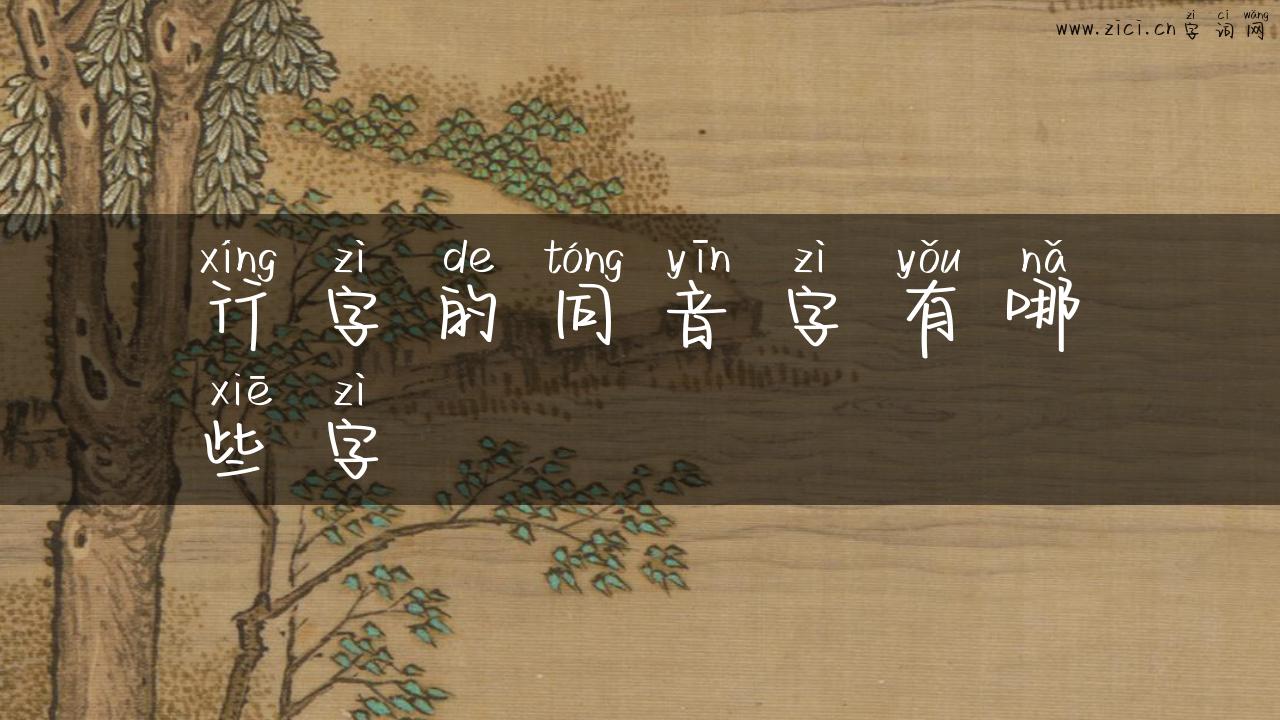 zì cí wǎng
www.zici.cn 字词网
xíng zì de tóng yīn zì yǒu nǎ
行字的同音字有哪
xiē zì
些字